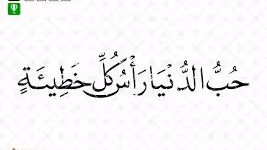 حُبُّ الدُّنْيَا رَأْسُ كُلِّ خَطِيئَةٍ